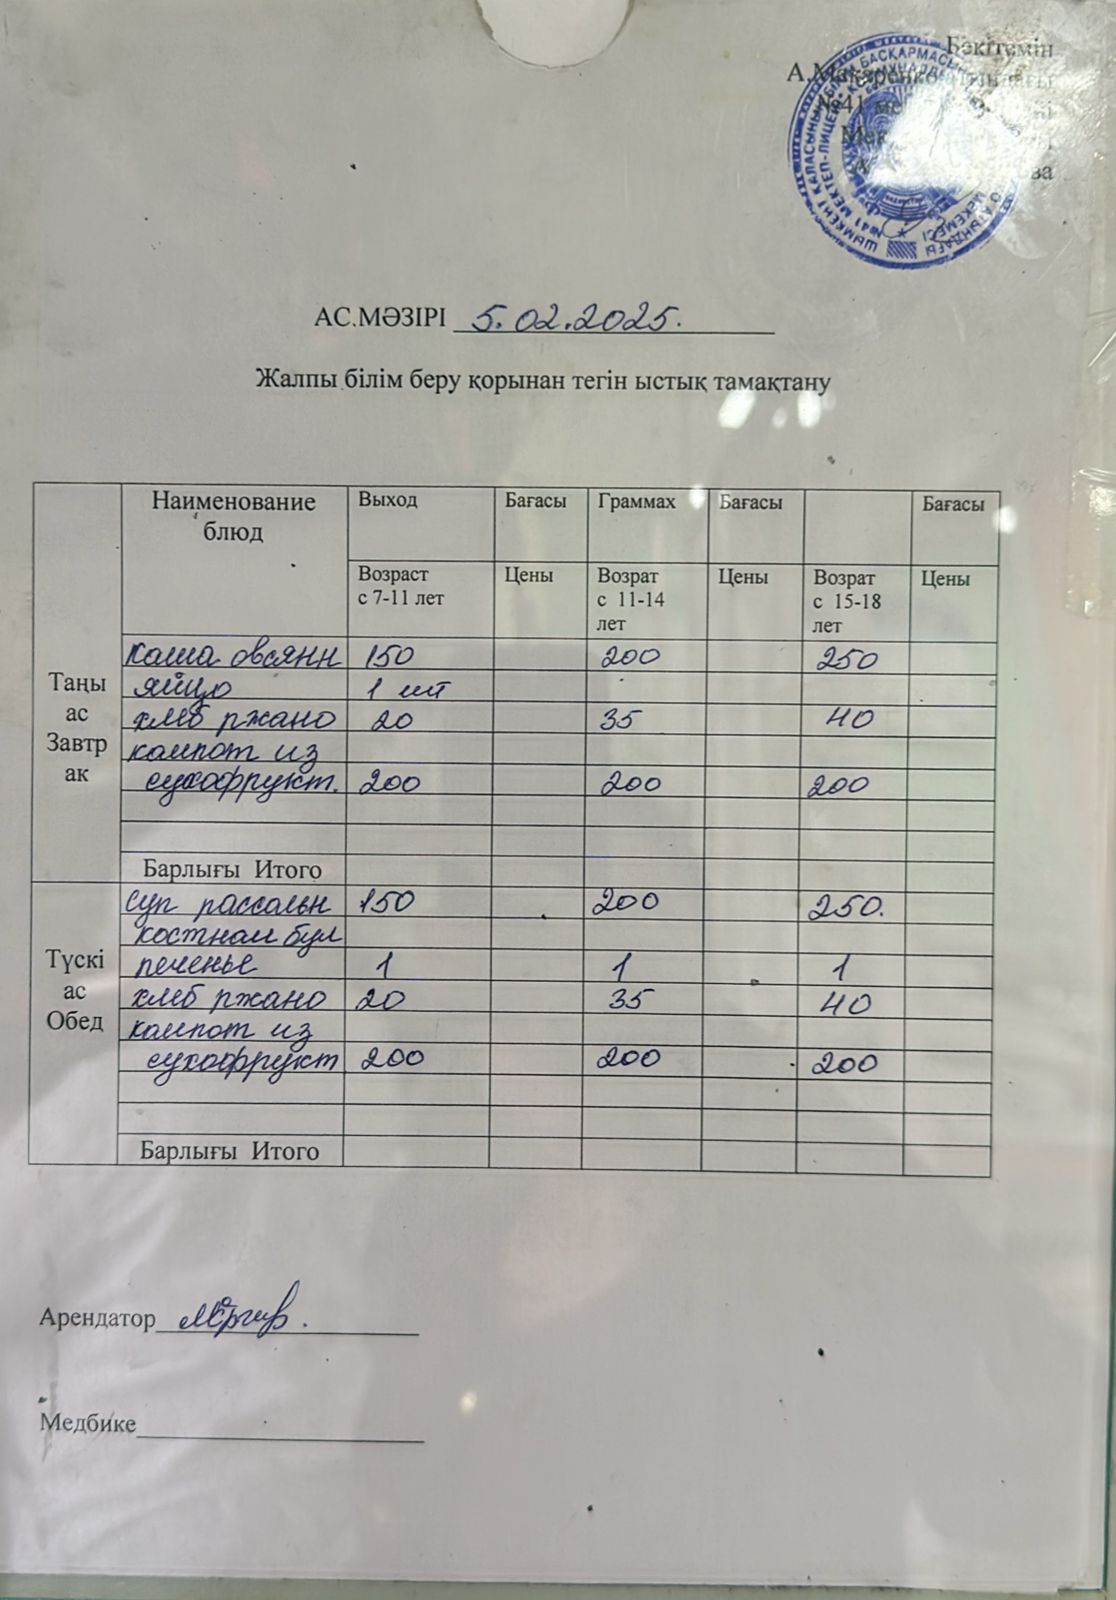 Бәкітемін
А.Макаренко атындағы
№41
ШЫМКЕНТ ҚАЛАСЫНЫҢ БІЛІМ БАСҚАРМАСЫНЫҢ
№41 МЕКТЕП-ЛИЦЕЙ
АТЫНДАҒЫ
МЕКЕМЕСІ
АС.МӘЗІРІ 5.02.2025.
Жалпы білім беру қорынан тегін ыстық тамақтану
Наименование блюд Выход Бағасы Граммах Бағасы Бағасы
Возраст с 7-11 лет Цены Возрат с 11-14 лет Цены Возрат с 15-18 лет Цены
Таңы ас Завтр ак
каша овсянн 150 200 250
яйцо 1 шт
хлеб ржано 20 35 40
компот из
сухофрукт. 200 200 200
Барлығы Итого
Түскі ас Обед
суп рассольн 150 200 250.
костном бул
печенье 1 1 1
хлеб ржано 20 35 40
компот из
сухофрукт 200 200 200
Барлығы Итого
Арендатор
Медбике